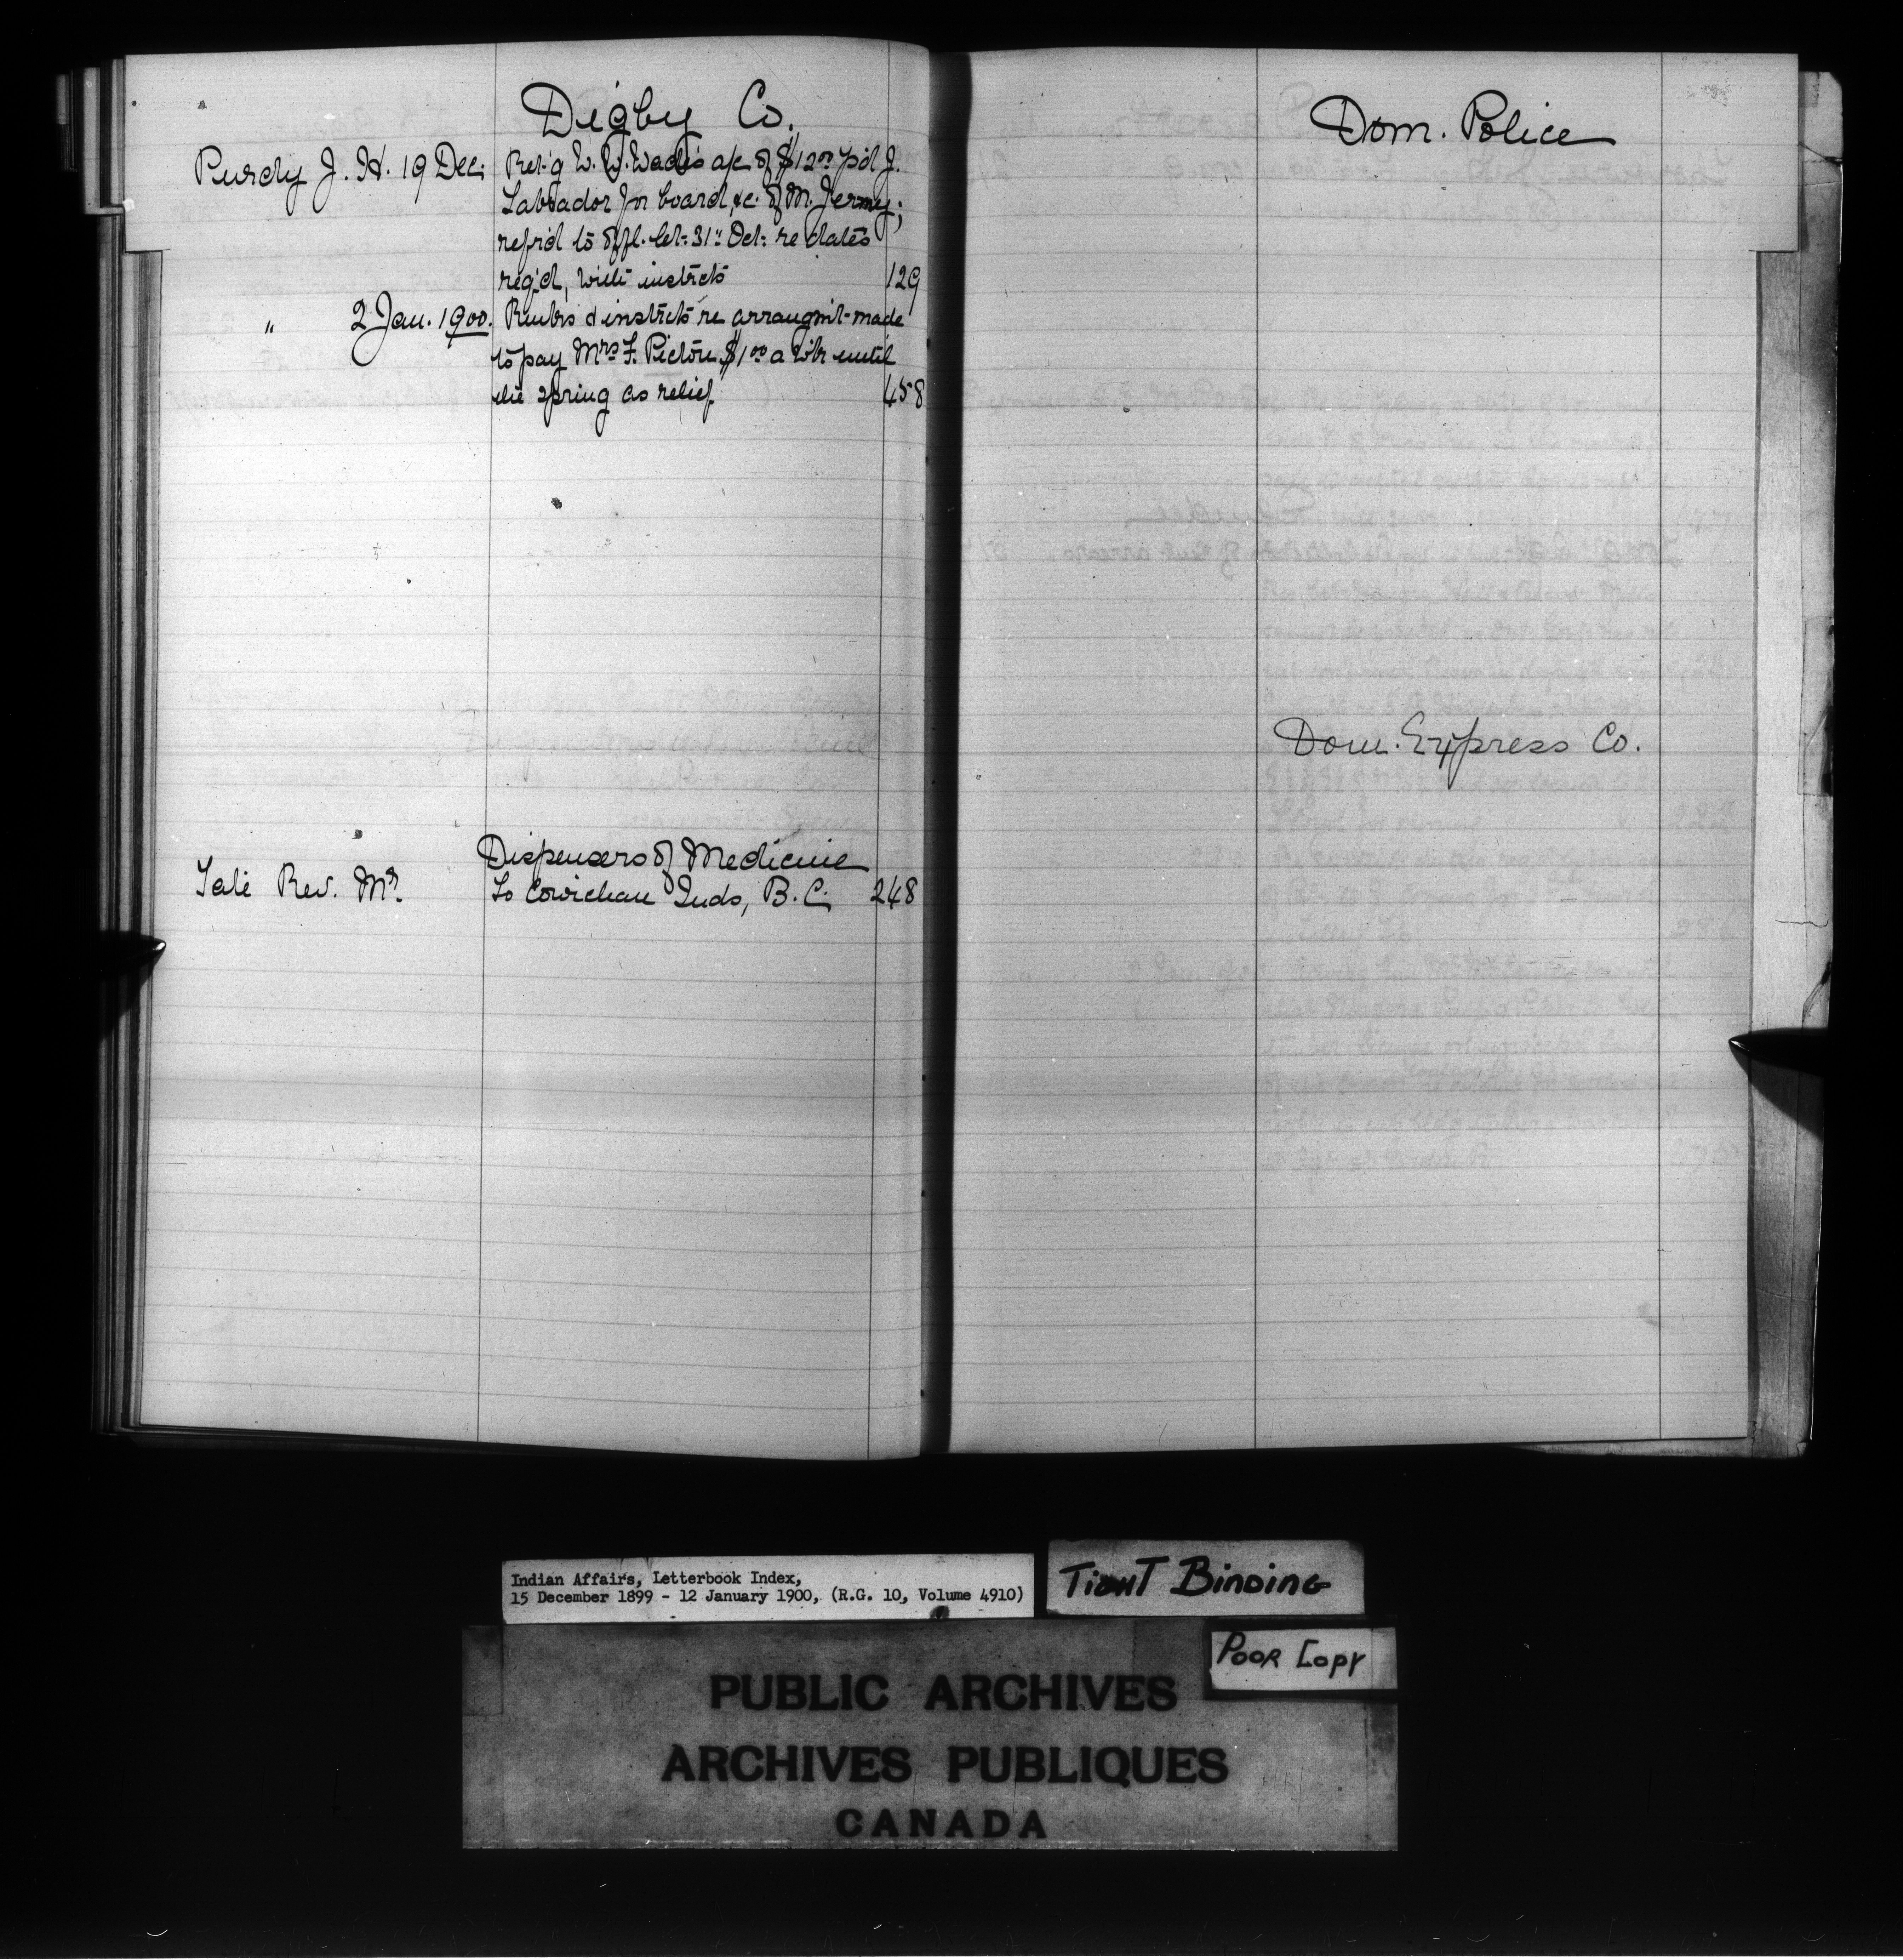 Digby Co.
Purdy J. H. 19 Dec: Ret'g W. W. Wade's a/c of $12.00 p'd J.
Labrador for board, &c. of M. Jermy;
refr'd to offl. let: 31st Oct: re dates
req'd, with instrcts 129
" 2 Jan. 1900. Rembs & instrcts re arrangmt made
to pay Mrs F. Pictou $1.00 a wk until
the spring as relief 458
Dispensers of Medicine
Tate Rev. Mr. To Cowichan Inds, B.C. 248
Dom. Police
Dom. Express Co.
Indian Affairs, Letterbook Index,
15 December 1899 - 12 January 1900, (R.G. 10, Volume 4910)
TIGHT BINDING
POOR COPY
PUBLIC ARCHIVES
ARCHIVES PUBLIQUES
CANADA